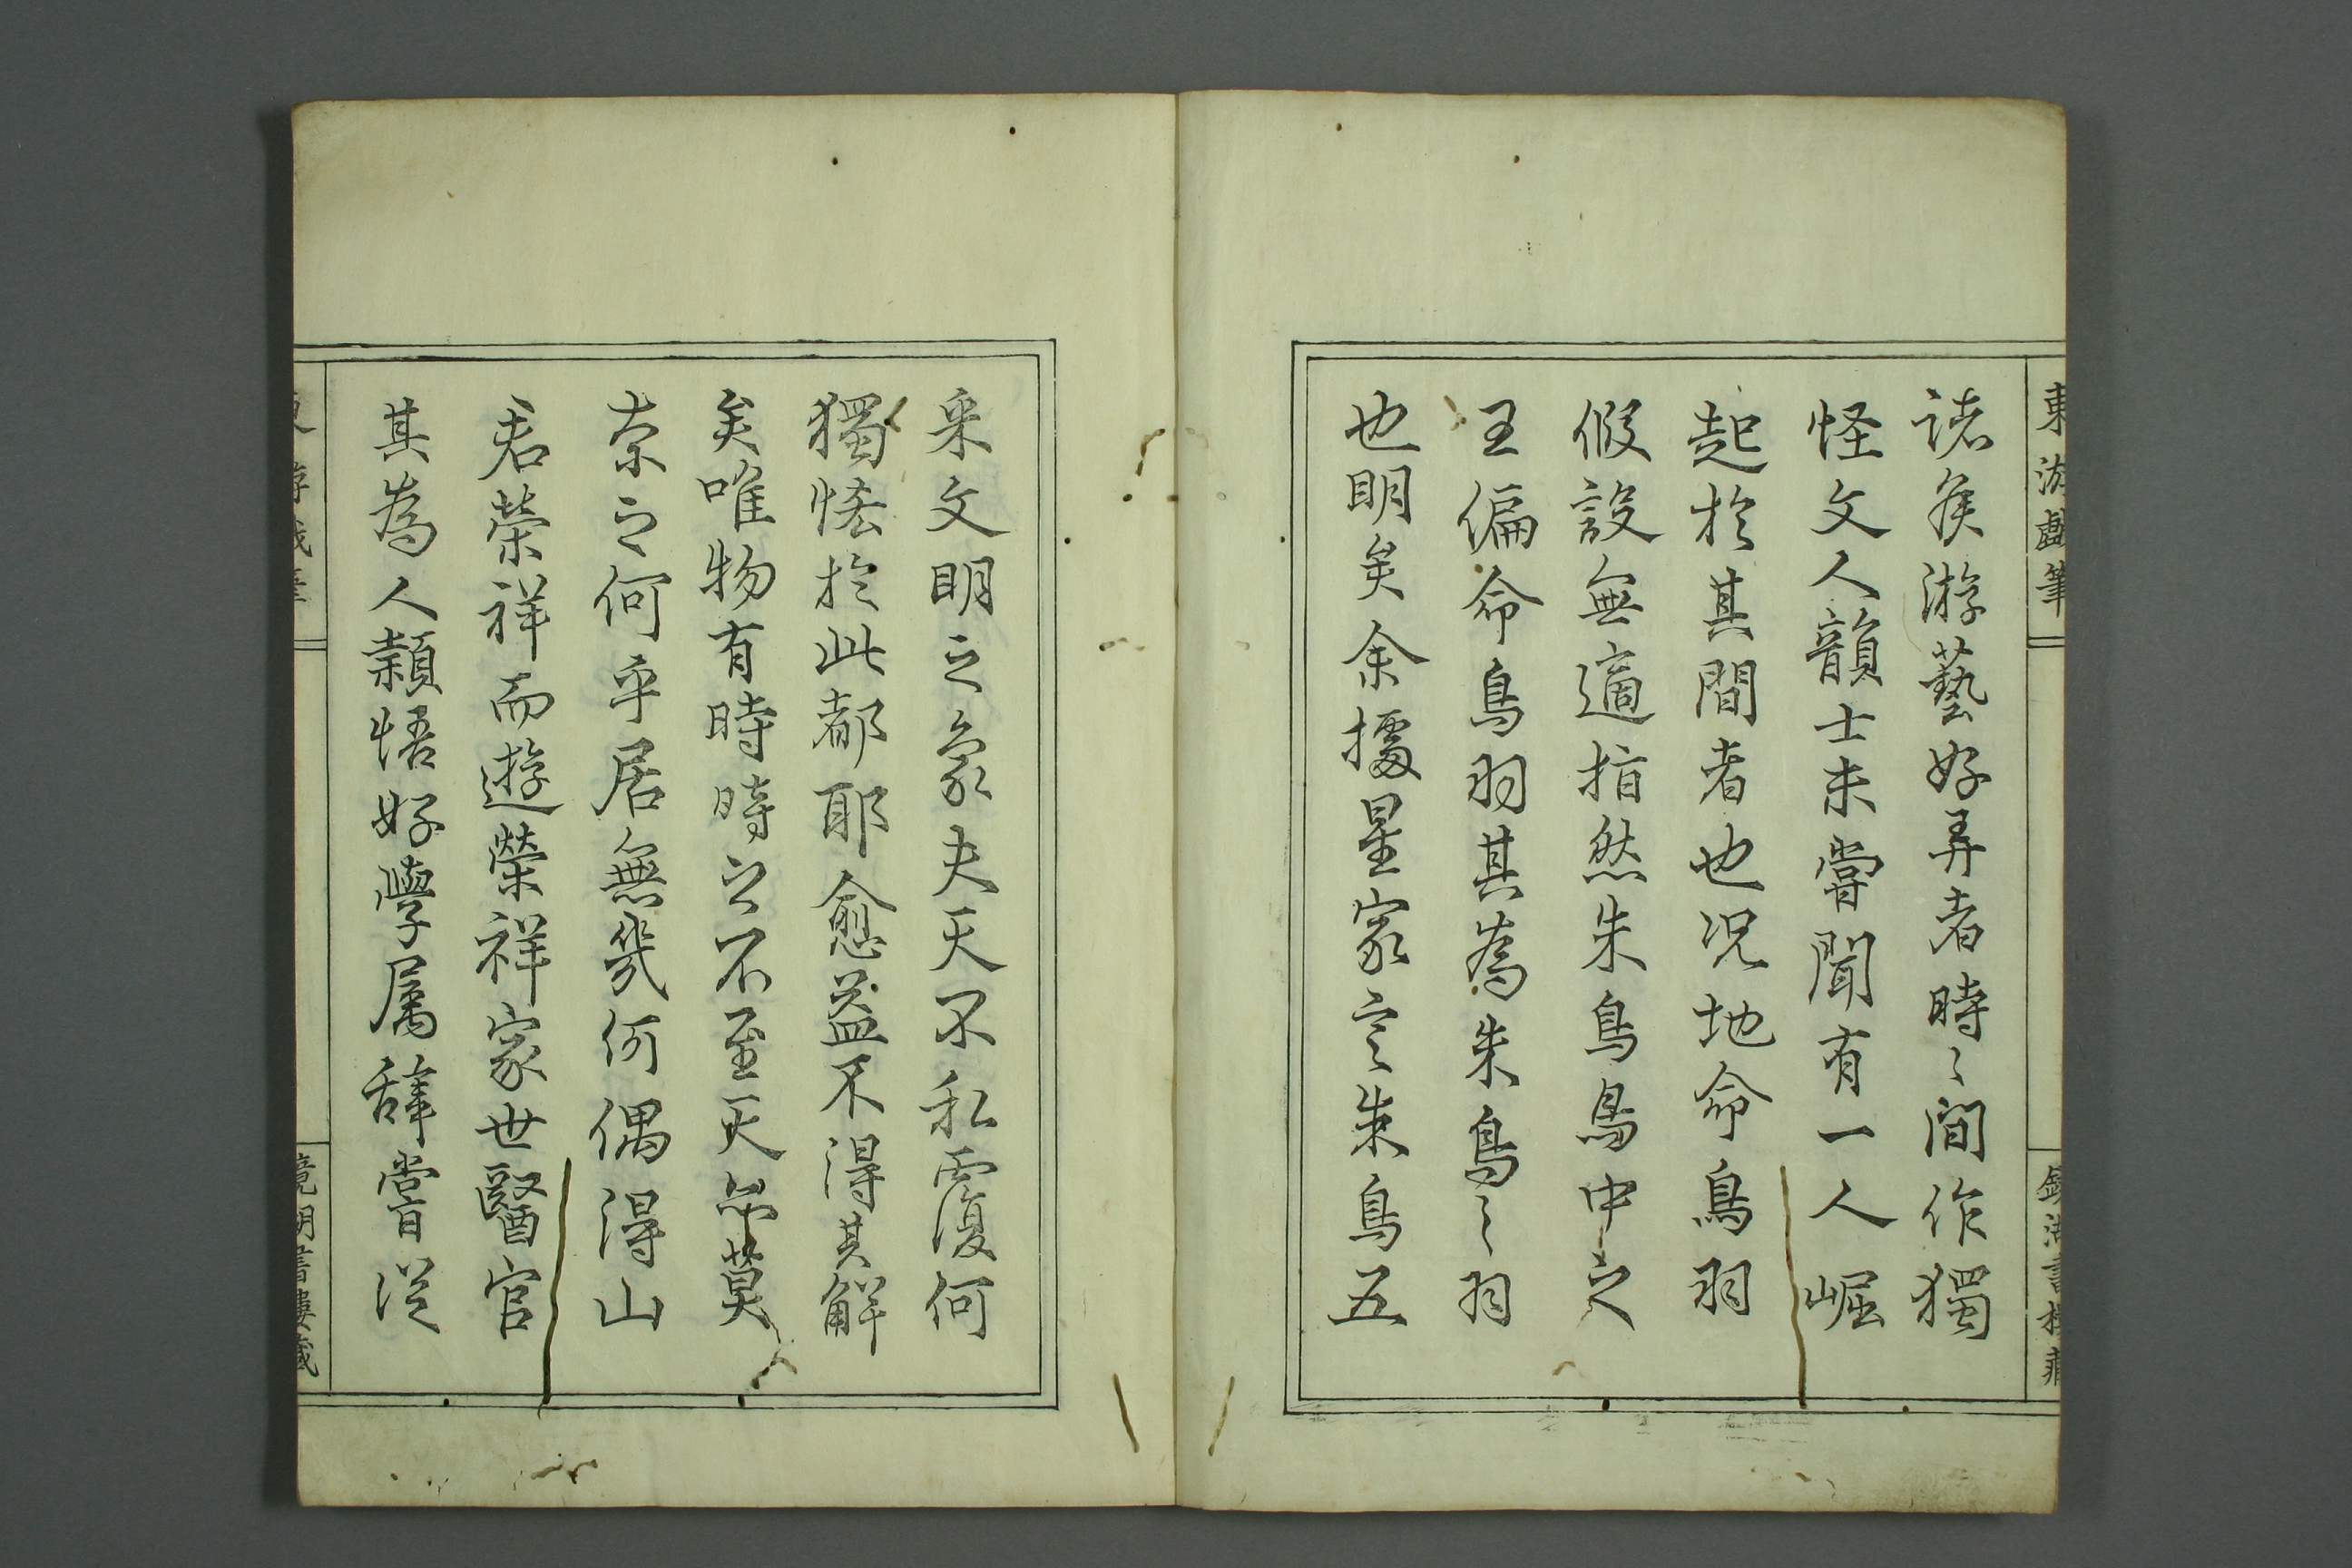 東游戲筆
鏡湖書樓藏
諸矦游藝好弄者時〻間作獨
怪文人韻士未嘗聞有一人崛
起於其間者也况地命鳥羽
假設無適指然朱鳥鳥中之
王偏命鳥羽其為朱鳥〻羽
也明矣余據星家言朱鳥五
采文明之象夫天不私覆何
獨恡於此都耶愈益不得其解
矣唯物有時時之不至天亦莫
奈之何乎居無幾何偶得山
君榮祥而遊榮祥家世醫官
其為人穎悟好學屬辭嘗從
東游戲筆
鏡湖書樓藏